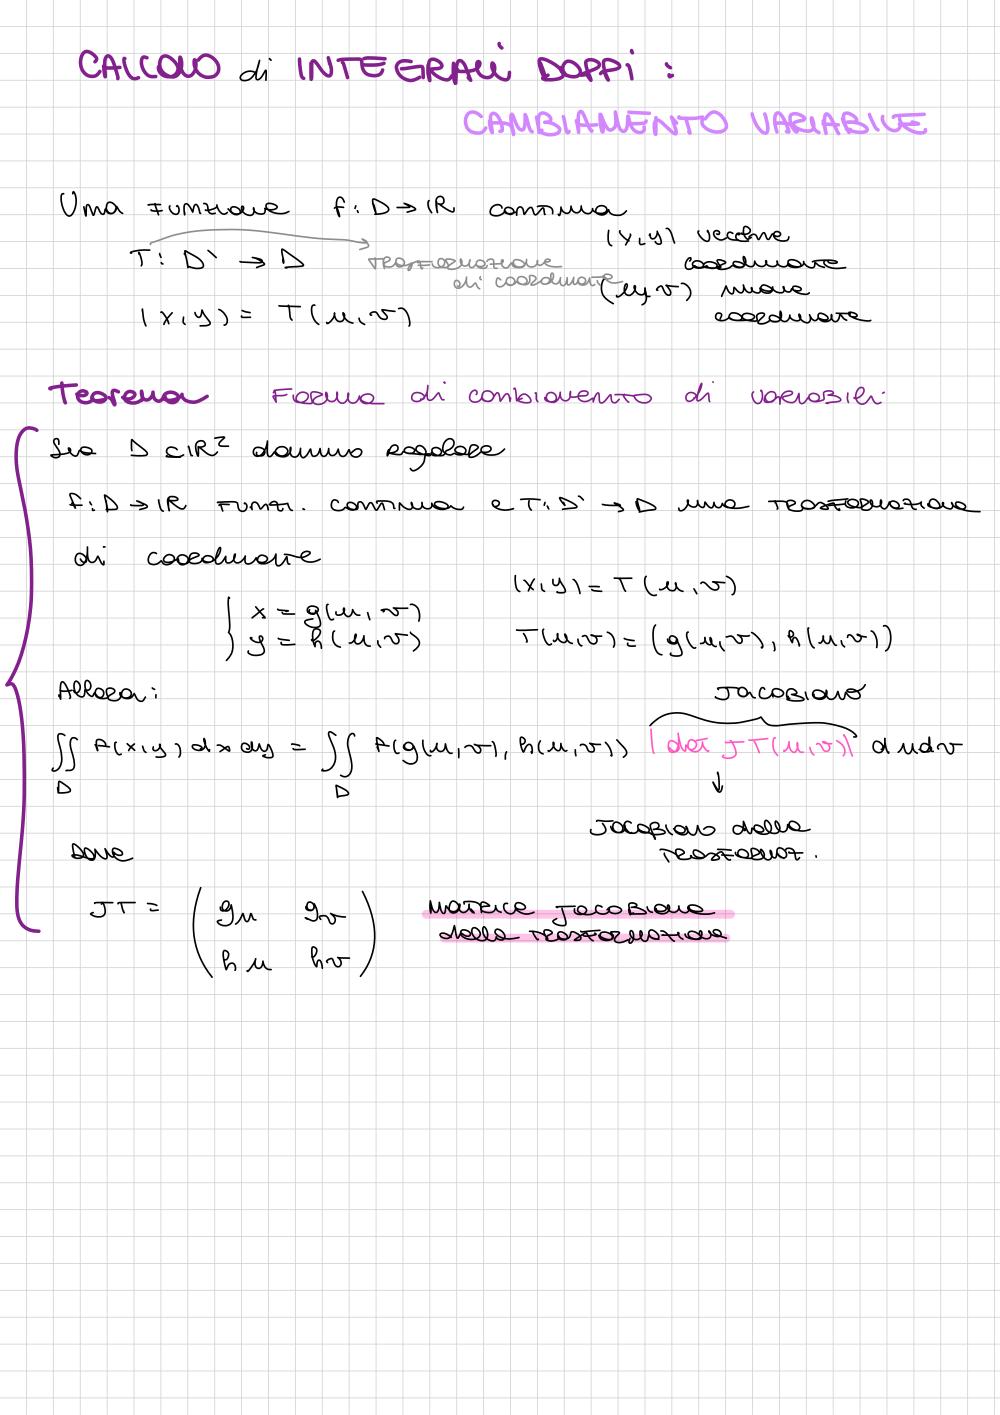 CALCOLO di INTEGRALI DOPPI :
CAMBIAMENTO VARIABILE
Una funzione f : D → IR continua
T : D' → D trasformazione di coordinate
(x,y) vecchie coordinate
(u,v) nuove coordinate
(x,y) = T(u,v)
Teorema Forma di cambiamento di variabili:
Sia D ⊂ IR² dominio regolare
f : D → IR funz. continua e T : D' → D una trasformazione
di coordinate
(x,y) = T(u,v)
{ x = g(u,v)
y = h(u,v)
T(u,v) = (g(u,v), h(u,v))
Allora:
Jacobiano
∬_D f(x,y) dx dy = ∬_D f(g(u,v), h(u,v)) |det JT(u,v)| du dv
↓
Jacobiano della
trasformaz.
Dove
JT = ( g_u g_v
h_u h_v )
matrice Jacobiana
della trasformazione